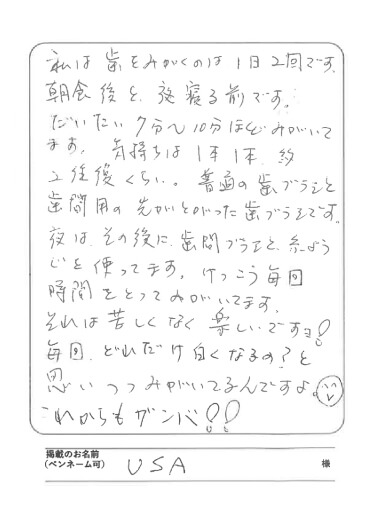 私は歯をみがくのは1日2回です。
朝食後と、夜寝る前です。
だいたい7分〜10分ほどみがいて
ます。気持ちは1本1本、約
2往復くらい。普通の歯ブラシと
歯間用の先がとがった歯ブラシです。
夜は、その後に、歯間ブラシと、糸よう
じを使ってます。けっこう毎回
時間をとってみがいてます。
それは苦しくなく楽しいですョ!
毎回、どれだけ白くなるの?と
思いつつみがいてるんですよ。
これからもガンバ!!
掲載のお名前
(ペンネーム可) USA 様